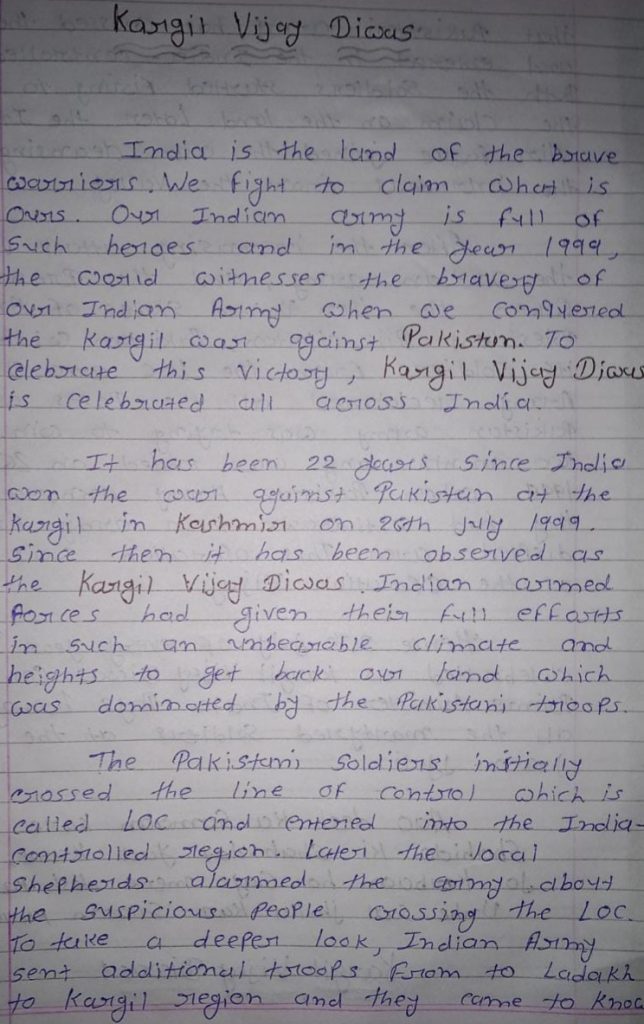 Kargil Vijay Diwas
India is the land of the brave
warriors. We fight to claim what is
Ours. Our Indian army is full of
Such heroes and in the year 1999,
the world witnesses the bravery of
our Indian Army when we conquered
the Kargil war against Pakistan. To
celebrate this victory, Kargil Vijay Diwas
is celebrated all across India.
It has been 22 years since India
won the war against Pakistan at the
Kargil in Kashmir on 26th July 1999.
Since then it has been observed as
the Kargil Vijay Diwas. Indian armed
forces had given their full efforts
in such an unbearable climate and
heights to get back our land which
was dominated by the Pakistani troops.
The Pakistani Soldiers initially
crossed the line of control which is
called LOC and entered into the India-
controlled region. Later the local
Shepherds alarmed the army about
the suspicious people crossing the LOC.
To take a deeper look, Indian Army
sent additional troops from to Ladakh
to Kargil region and they came to know